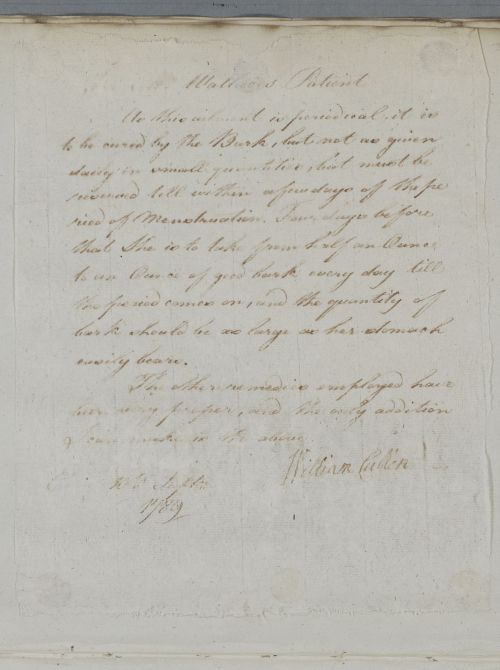 Wallaces Patient
As this ailment is periodical, it is
to be cured by the Bark, but not as given
daily in small quantities, but must be
reserved till within a few days of the pe
riod of Menstruation. Four days before
that She is to take from half an Ounce
to an Ounce of good bark every day till
the period comes on, and the quantity of
bark should be as large as her stomach
easily bears.
The other remedies employed have
been very proper, and the only addition
I can make is the above
William Cullen
Septr
1789